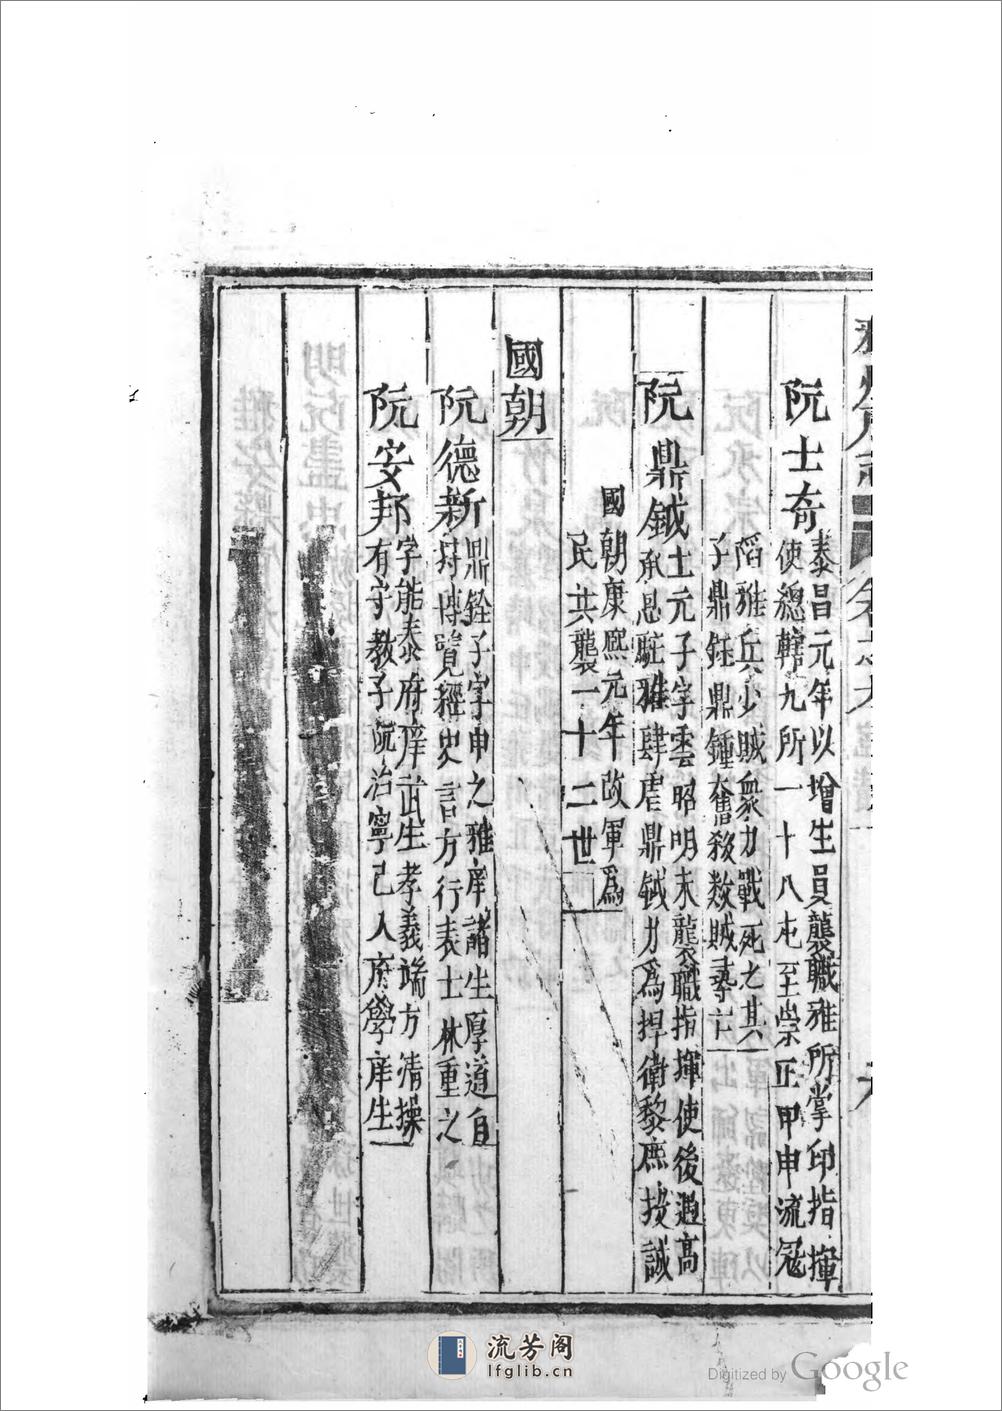 阮士奇
泰昌元年以增生員襲職雅所掌印指揮
使總轄九所一十八屯至崇正甲申流冦
陷雅兵少賊衆力戰死之其
子鼎鈺鼎鍾奮殺数賊
阮鼎鉞
士元子字雲昭明末襲職指揮使後遇高
承恩駐雅肆虐鼎鉞力為捍衛黎庶投誠
國朝康熙元年改軍為
民共襲一十二世
國朝
阮德新
鼎銓子字申之雅庠諸生厚道自
持博覽經史言方行表士林重之
阮安邦
字能泰府庠武生孝義端方清操
有守教子阮治寧已入府學庠生
流芳阁
lfglib.cn
Digitized by Google